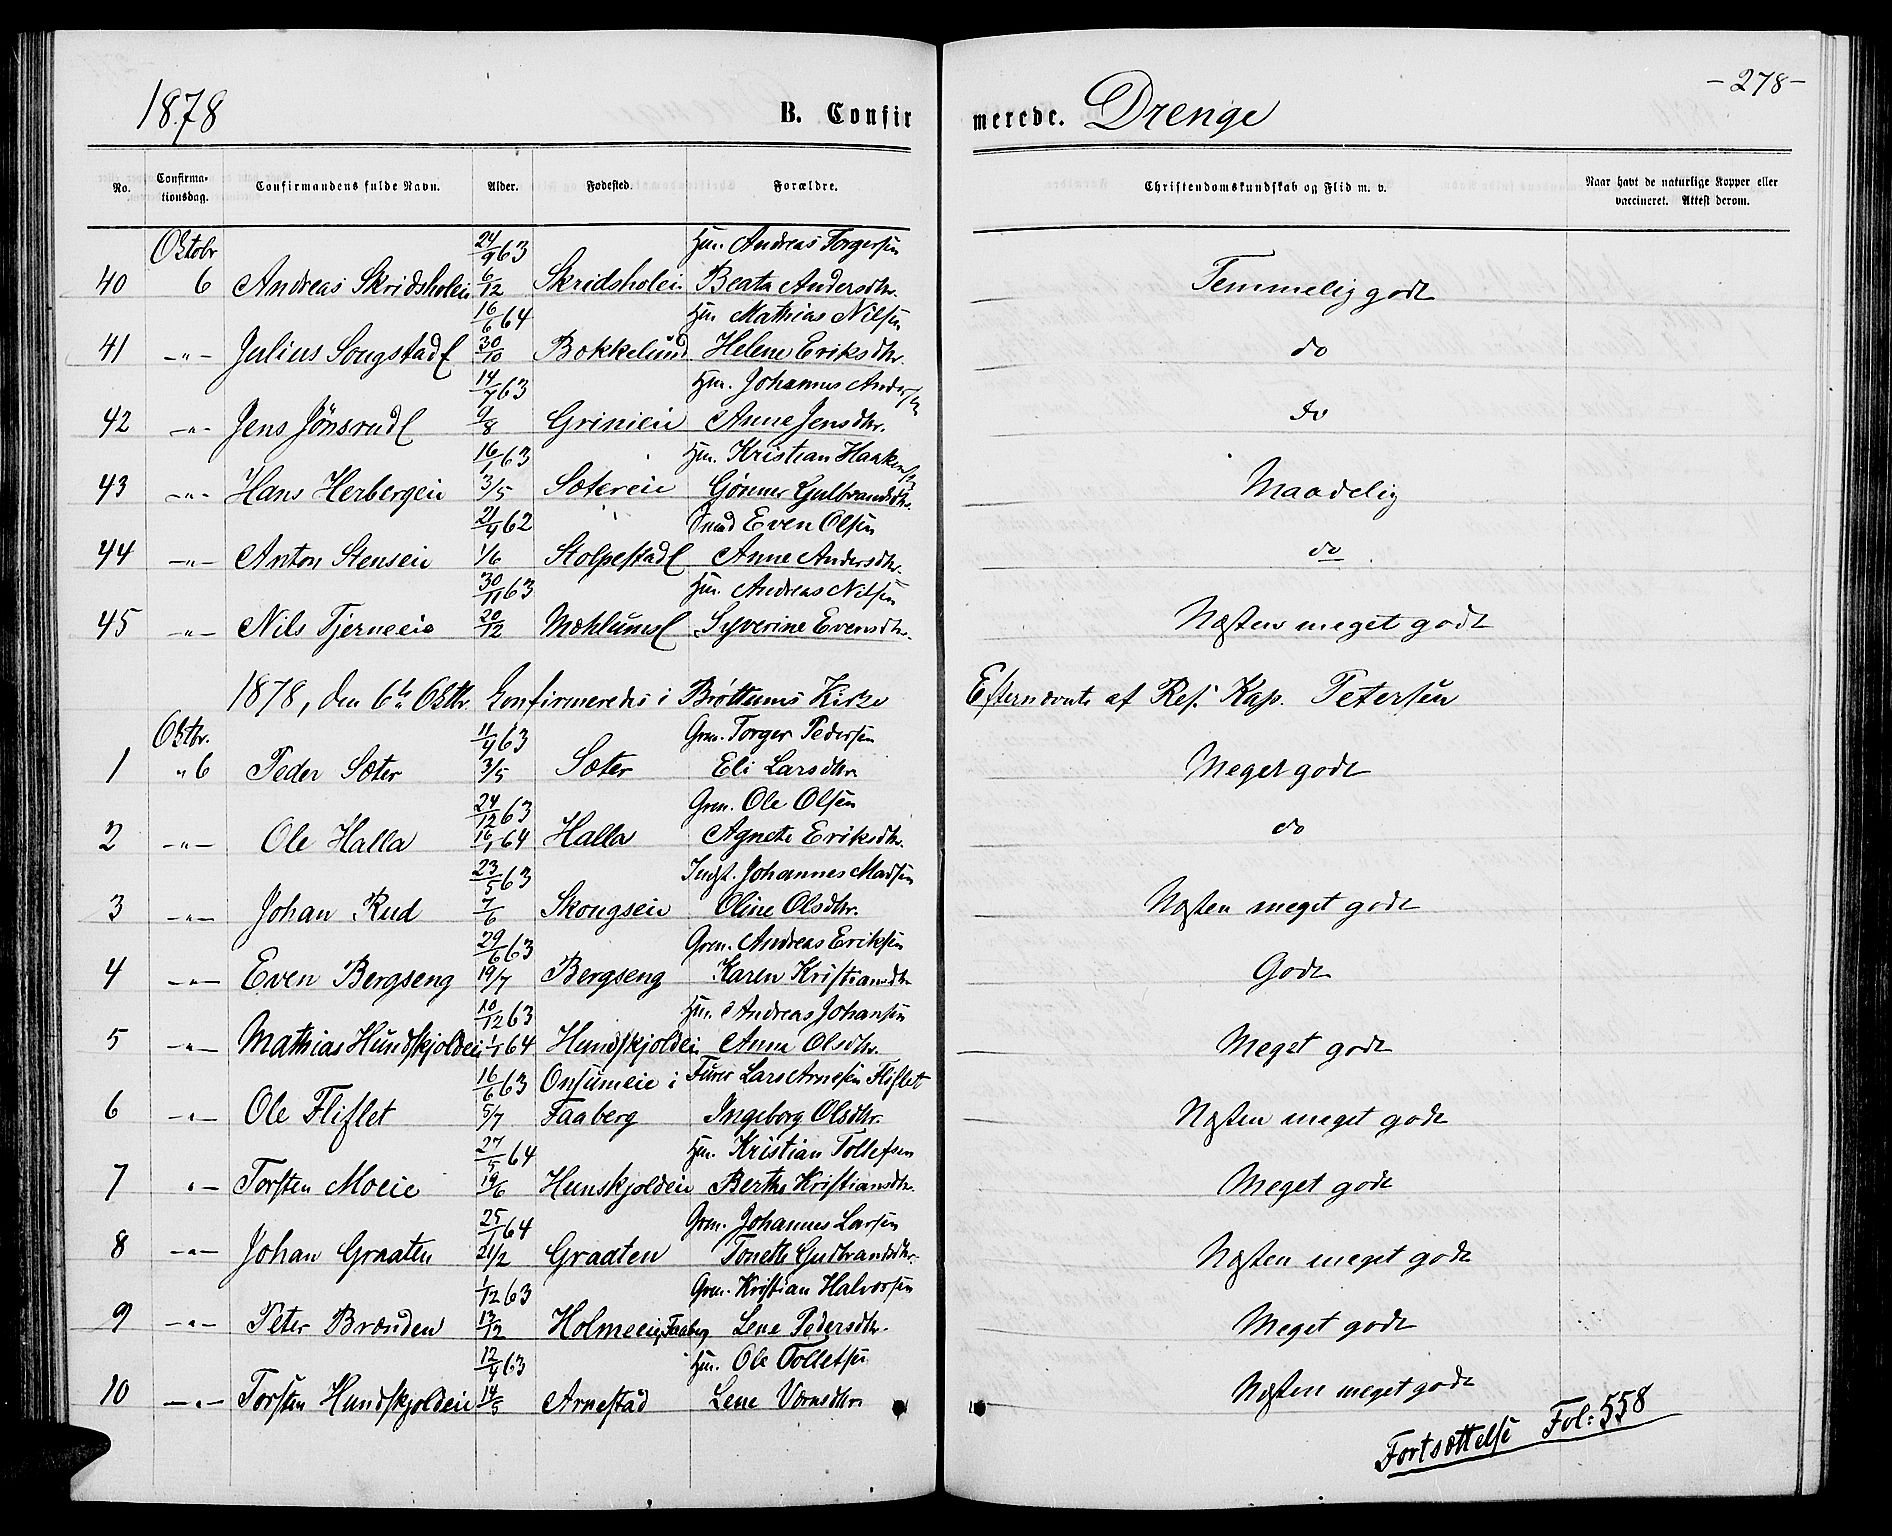 1878
B. Confir
merede. Drenge
-278-
No.
Confirma-
tionsdag.
Confirmandens fulde Navn.
Alder.
Fødested.
Forældre.
Christendomskundskab og Flid m. v.
Naar havt de naturlige Kopper eller
vaccineret. Attest derom.
Oktobr 24/9 63 Hm. Andreas Torgersen
40 6 Andreas Skridsholeie 6/12 Skridsholei Beata Andersdtr. Temmelig godt
16/6 64 Hm Mathias Nilsen
41 -"- Julius Songstad 30/10 Bokkelund Helene Eriksdtr. do
14/7 63 Hm. Johannes Andersen
42 -"- Jens Jønsrud 9/8 Grinieie Anne Jensdtr. do
16/1 63 Hm. Kristian Haakensen
43 -"- Hans Herbergeie 3/5 Sætereie Gønner Gulbrandsdtr. Maadelig
21/4 62 Smed Even Olsen
44 -"- Anton Stenseie 1/6 Stolpestad Anne Andersdtr. do
30/11 63 Hm. Andreas Nilsen
45 -"- Nils Tjerneeie 20/12 Mæhlums Syverine Evensdtr. Næsten meget godt
1878, den 6te Oktbr. Konfirmeredes i Brøttums Kirke Efternævnte af Res. Kap. Petersen
Oktbr. 11/4 63 Grm. Torger Pedersen
1 " 6 Peder Sæter 3/5 Sæter Eli Larsdtr. Meget godt
24/12 63 Grm. Ole Olsen
2 -"- Ole Halla 16/1 64 Halla Agnete Eriksdtr. do
23/5 63 Ingst. Johannes Madsen
3 -"- Johan Rud 7/6 Skougseie Oline Olsdtr. Næsten meget godt
29/6 63 Grm. Andreas Eriksen
4 -"- Even Bergseng 19/7 Bergseng Karen Kristiansdtr Godt
10/12 63 Hm. Andreas Johansen
5 -"- Mathias Hundskjoldeie 1/1 64 Hundskjoldei Anne Olsdtr. Meget godt
16/6 63 Onsumeie i Furer Lars Arnesen Fliflet
6 -"- Ole Fliflet 5/7 Faaberg Ingeborg Olsdtr. Næsten meget godt
27/5 64 Hm. Kristian Tollefsen
7 "- Torsten Moeie 19/6 Hunskjoldeie Berthe Kristiansdtr. Meget godt
25/1 64 Grm. Johannes Larsen
8 -"- Johan Graaten 21/2 Graaten Tonette Gudbrandsdtr. Næsten meget godt
1/12 63 Grm. Kristian Halvorsen
9 -"- Peter Brænden 13/12 Holmeeie, Faaberg Lene Pedersdtr. Meget godt
12/4 63 Hm. Ole Tollefsen
10 -"- Torsten Hundskjoldeie 14/5 Arnestad Lene Børnsdtr. Næsten meget godt
Fortsættelse Fol: 558